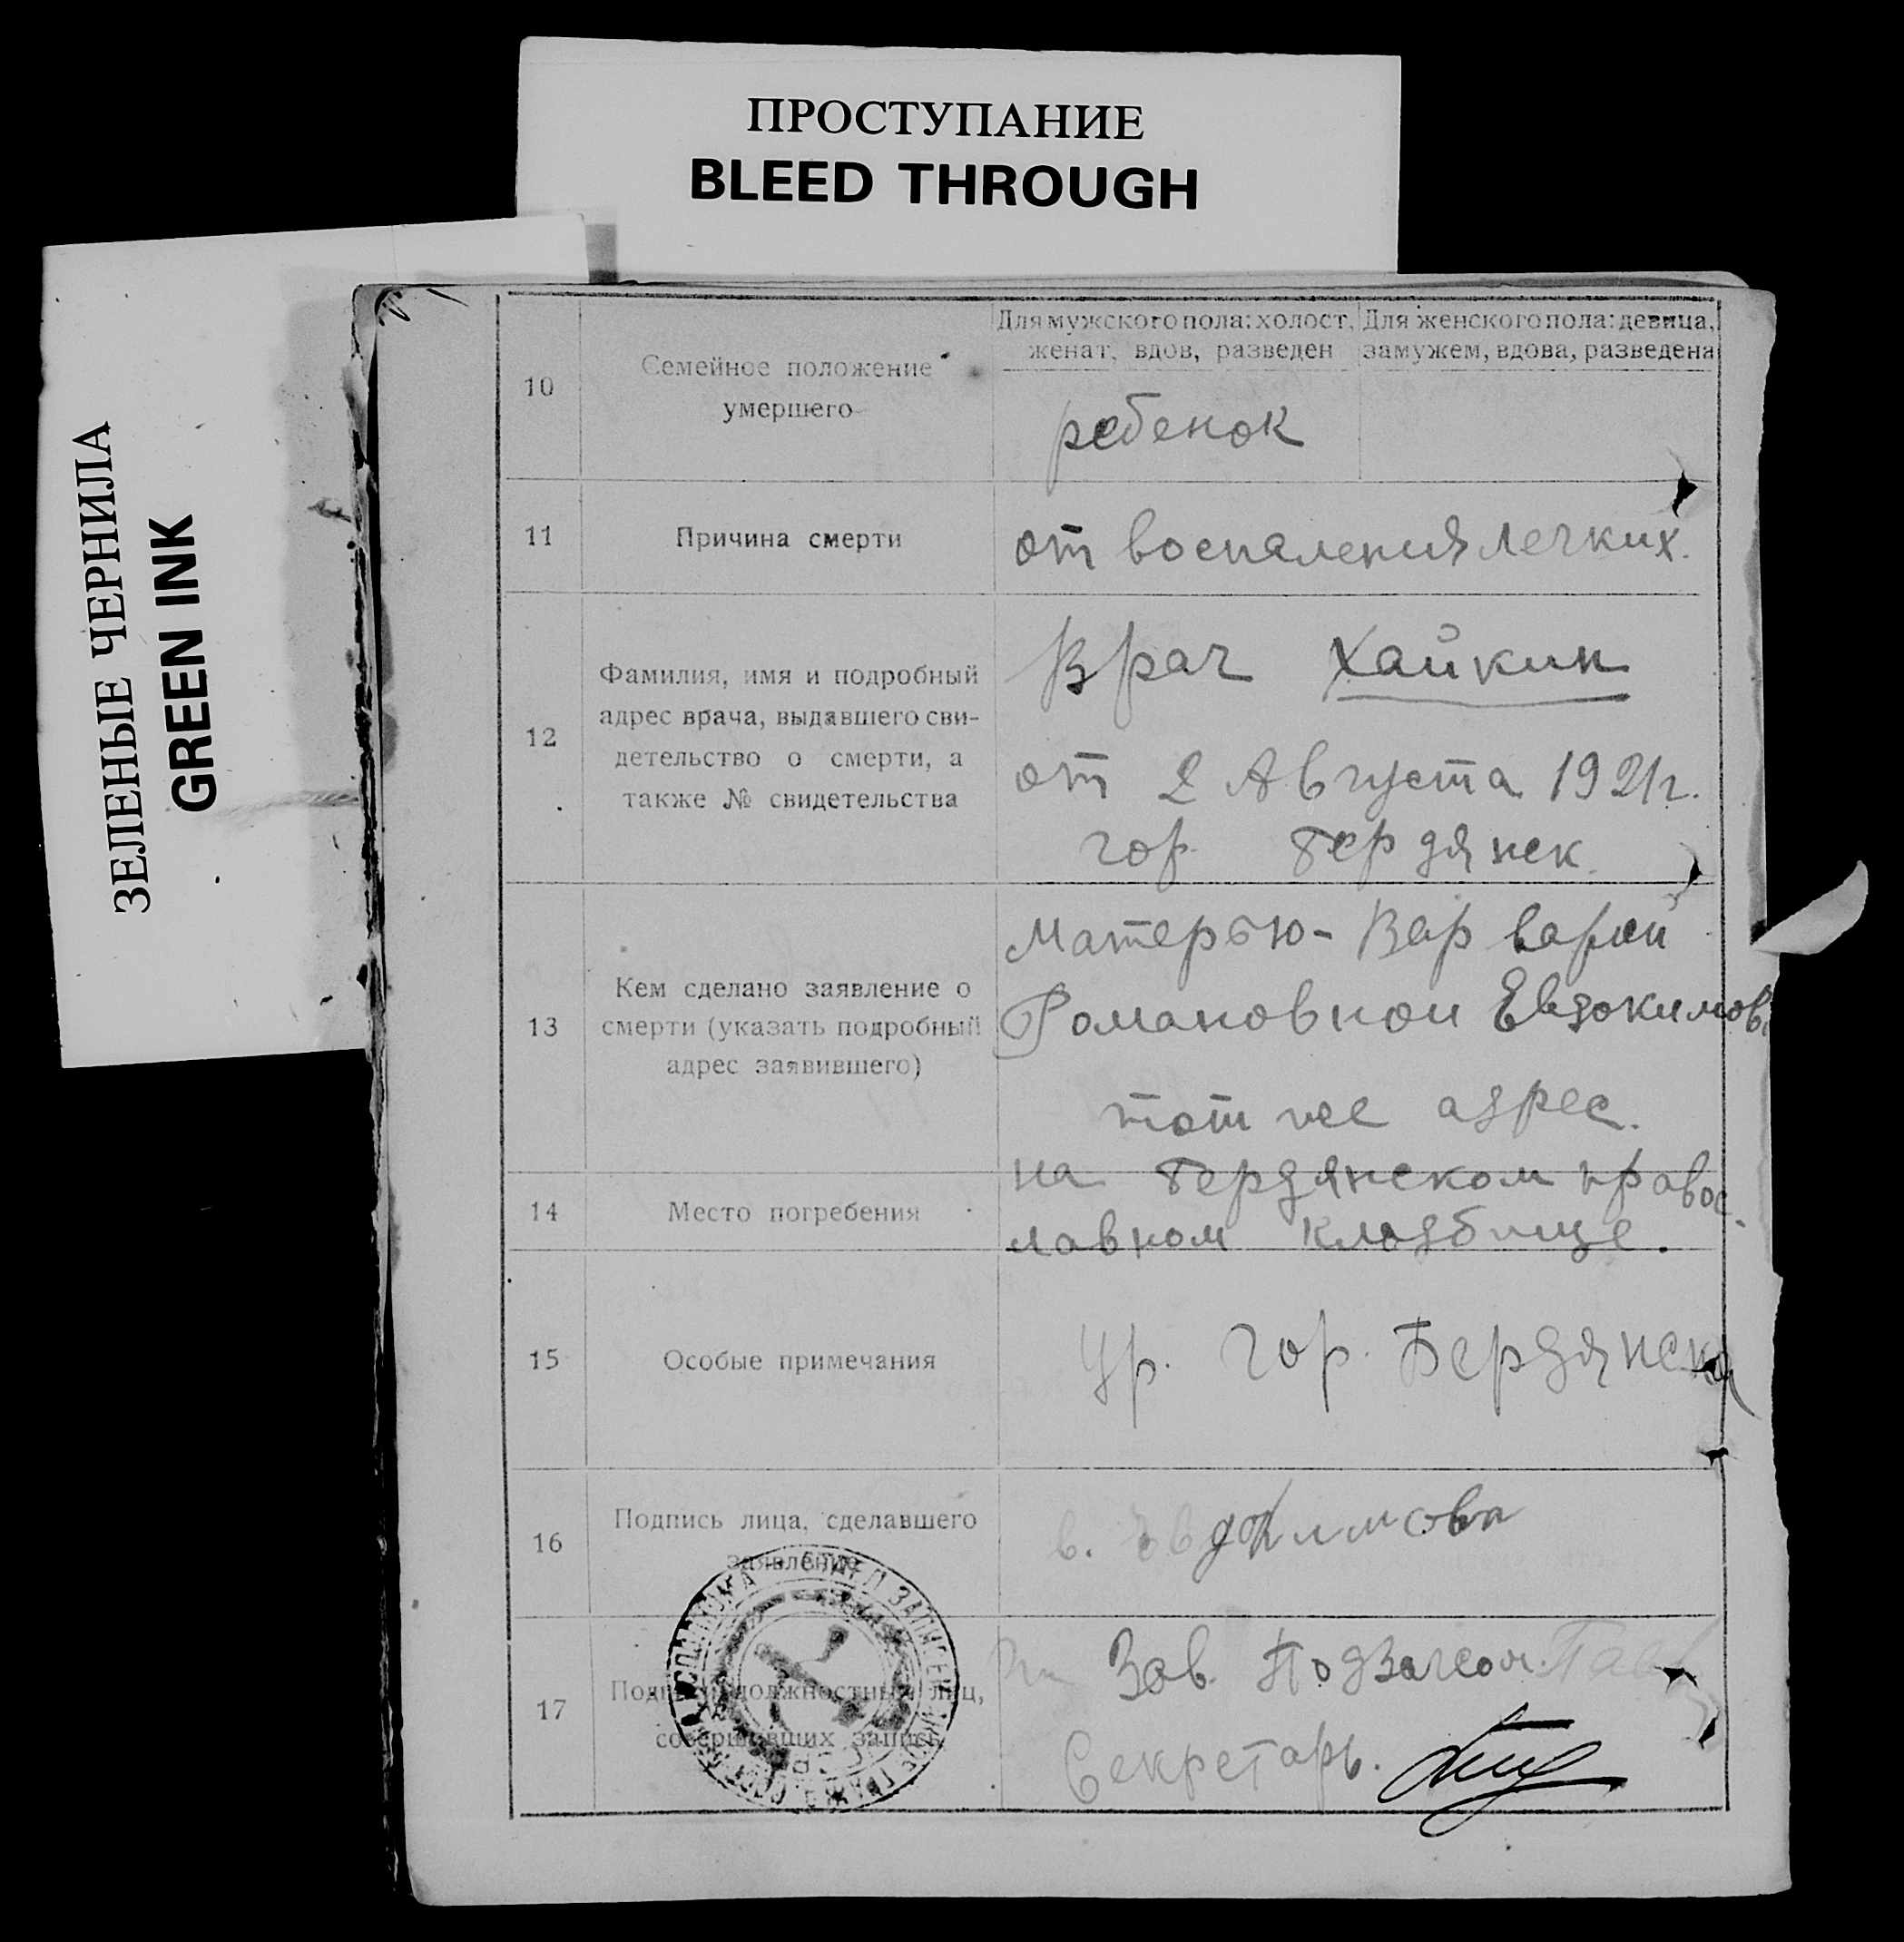 ПРОСТУПАНИЕ
BLEED THROUGH
ЗЕЛЕНЫЕ ЧЕРНИЛА
GREEN INK
10
Семейное положение
умершего
Для мужского пола: холост,
женат, вдов, разведен
Для женского пола: девица,
замужем, вдова, разведена
ребенок
11
Причина смерти
от воспаления легких.
12
Фамилия, имя и подробный
адрес врача, выдавшего сви-
детельство о смерти, а
также № свидетельства
Врач Хайкин
от 2 Августа 1921г.
гор. Бердянск.
13
Кем сделано заявление о
смерти (указать подробный
адрес заявившего)
Матерью - Варварой
Романовной Евдокимов
тот же адрес.
14
Место погребения
на Бердянском правос
лавном кладбище.
15
Особые примечания
Ур. гор. Бердянска
16
Подпись лица, сделавшего
заявление
в. Евдокимова
17
Подписи должностных лиц,
совершивших запись
Зав. Подзагсом.
Секретарь.